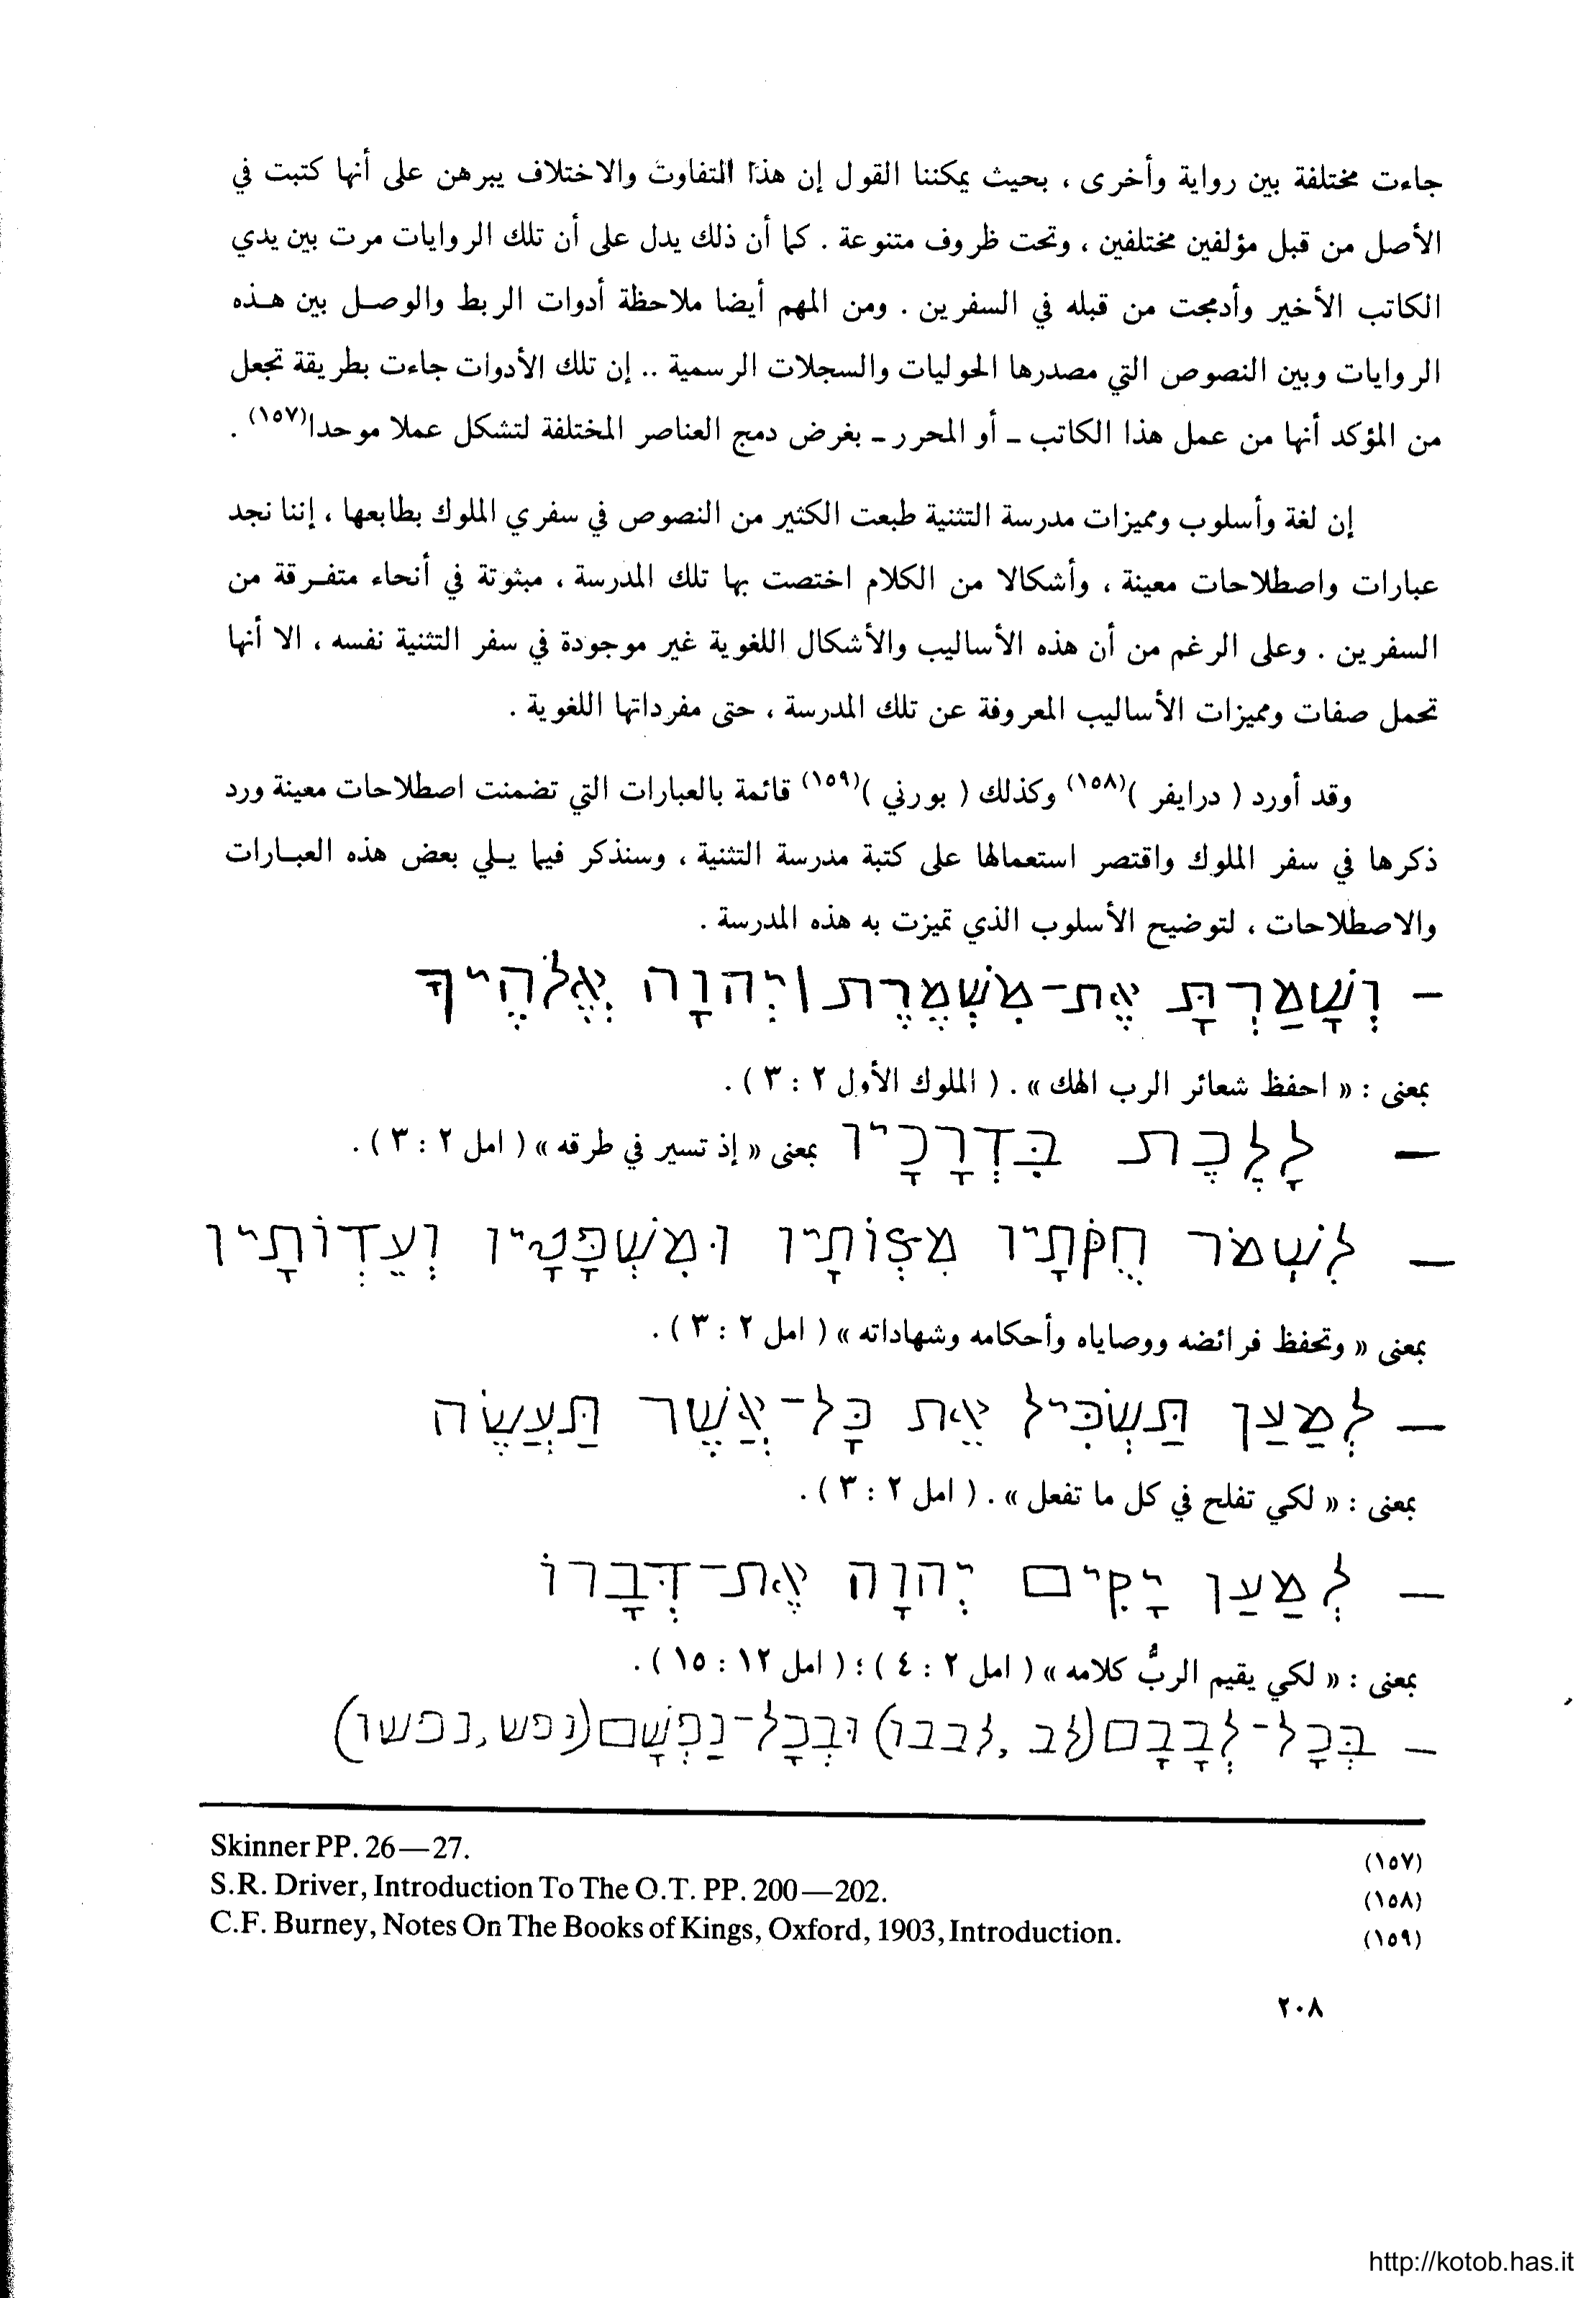 جاءت مختلفة بين رواية وأخرى ، بحيث يمكننا القول إن هذا التفاوت والاختلاف يبرهن على أنها كتبت في
الأصل من قبل مؤلفين مختلفين ، وتحت ظروف متنوعة . كما أن ذلك يدل على أن تلك الروايات مرت بين يدي
الكاتب الأخير وأدمجت من قبله في السفرين . ومن المهم أيضا ملاحظة أدوات الربط والوصـل بين هـذه
الروايات وبين النصوص التي مصدرها الحوليات والسجلات الرسمية .. إن تلك الأدوات جاءت بطريقة تجعل
من المؤكد أنها من عمل هذا الكاتب ـ أو المحرر ـ بغرض دمج العناصر المختلفة لتشكل عملا موحدا(١٥٧) .
إن لغة وأسلوب ومميزات مدرسة التثنية طبعت الكثير من النصوص في سفري الملوك بطابعها ، إننا نجد
عبارات واصطلاحات معينة ، وأشكالا من الكلام اختصت بها تلك المدرسة ، مبثوتة في أنحاء متفـرقة من
السفرين . وعلى الرغم من أن هذه الأساليب والأشكال اللغوية غير موجودة في سفر التثنية نفسه ، الا أنها
تحمل صفات ومميزات الأساليب المعروفة عن تلك المدرسة ، حتى مفرداتها اللغوية .
وقد أورد ( درايفر )(١٥٨) وكذلك ( بورني )(١٥٩) قائمة بالعبارات التي تضمنت اصطلاحات معينة ورد
ذكرها في سفر الملوك واقتصر استعمالها على كتبة مدرسة التثنية ، وسنذكر فيما يـلي بعض هذه العبـارات
والاصطلاحات ، لتوضيح الأسلوب الذي تميزت به هذه المدرسة .
– וְשָׁמַרְתָּ אֶת־מִשְׁמֶרֶת ׀ יְהוָה אֱלֹהֶיךָ
بمعنى : « احفظ شعائر الرب الهك » . ( الملوك الأول ٢ : ٣ ) .
– לָלֶכֶת בִּדְרָכָיו بمعنى « إذ تسير في طرقه » ( امل ٢ : ٣ ) .
– לִשְׁמֹר חֻקֹּתָיו מִצְוֹתָיו וּמִשְׁפָּטָיו וְעֵדְוֹתָיו
بمعنى « وتحفظ فرائضه ووصاياه وأحكامه وشهاداته » ( امل ٢ : ٣ ) .
– לְמַעַן תַּשְׂכִּיל אֵת כָּל־אֲשֶׁר תַּעֲשֶׂה
بمعنى : « لكي تفلح في كل ما تفعل » . ( امل ٢ : ٣ ) .
– לְמַעַן יָקִים יְהוָה אֶת־דְּבָרוֹ
بمعنى : « لكي يقيم الربُّ كلامه » ( امل ٢ : ٤ ) ؛ ( امل ١٢ : ١٥ ) .
– בְּכָל־לְבָבָם(לב ,לבבו) וּבְכָל־נַפְשָׁם(נפש,נפשו)
(١٥٧) Skinner PP. 26—27.
(١٥٨) S.R. Driver, Introduction To The O.T. PP. 200—202.
(١٥٩) C.F. Burney, Notes On The Books of Kings, Oxford, 1903, Introduction.
٢٠٨
http://kotob.has.it